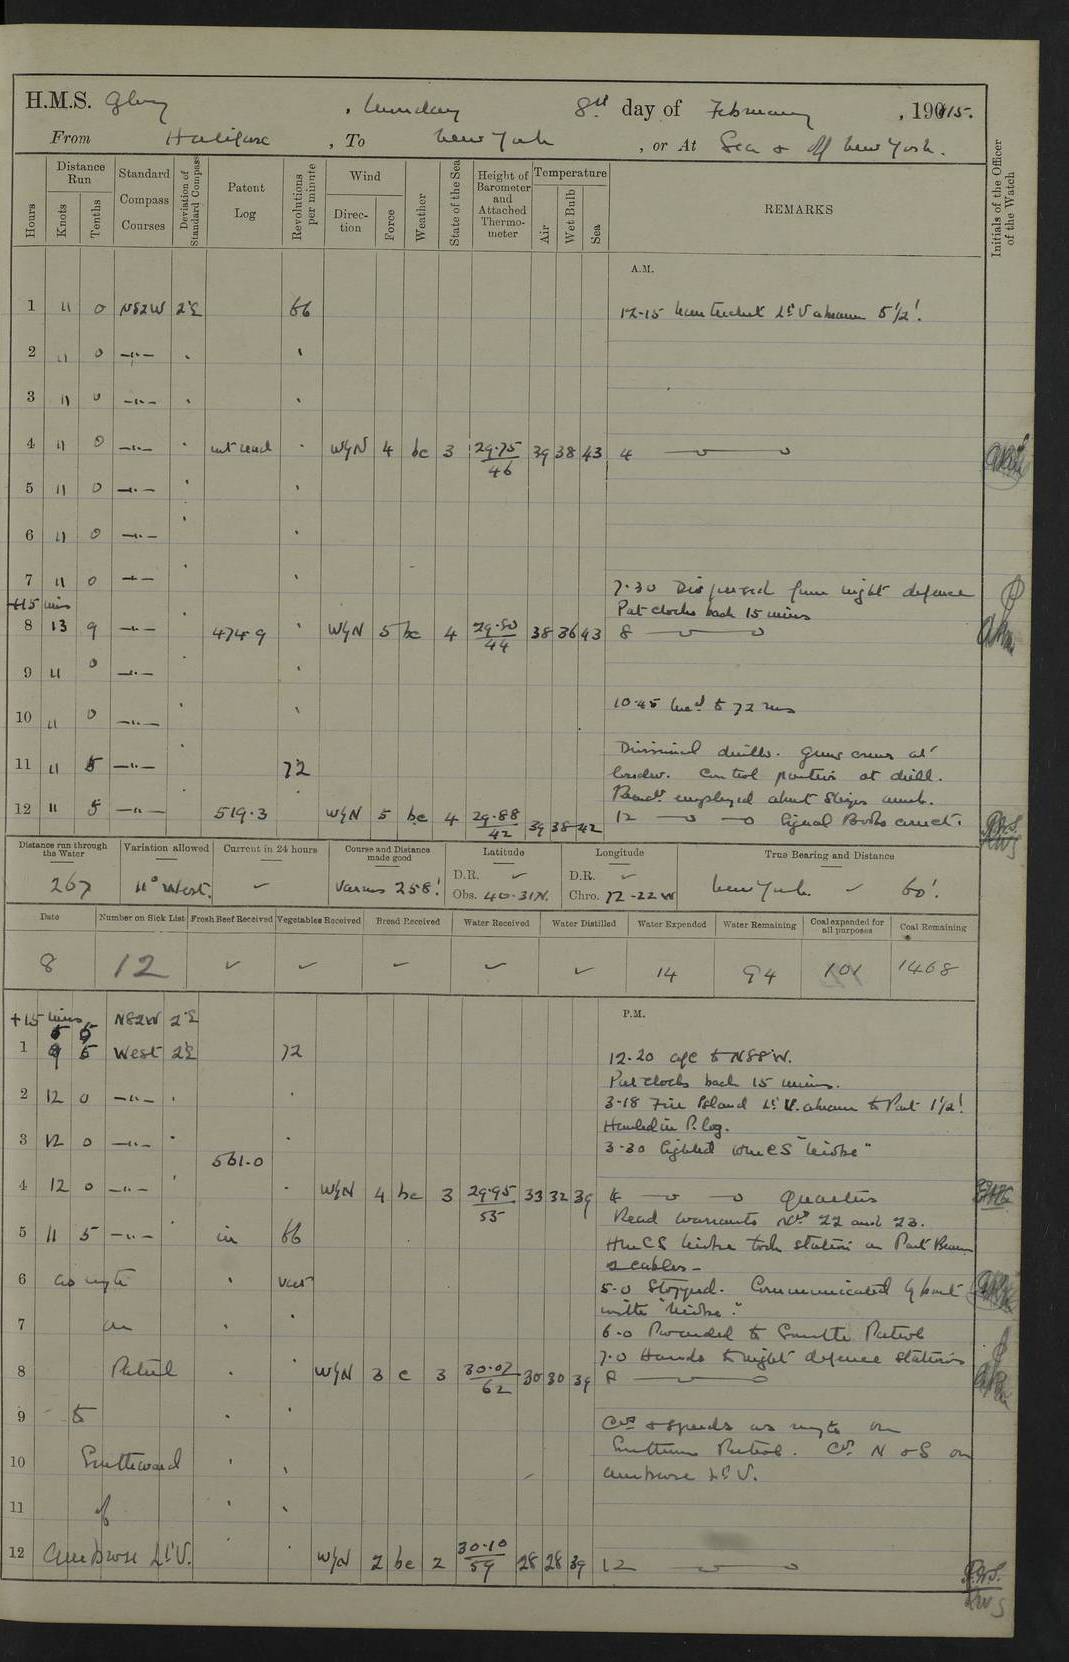 H.M.S. Glory, Monday 8th day of February, 1915.
From Halifax, To New York, or At Sea & off New York.
Hours
Distance Run
Knots
Tenths
Standard Compass Courses
Deviation of Standard Compass
Patent Log
Revolutions per minute
Wind
Direction
Force
Weather
State of the Sea
Height of Barometer and Attached Thermometer
Temperature
Air
Wet Bulb
Sea
REMARKS
Initials of the Officer of the Watch
A.M.
1 11 0 N82W 2°E 66 12-15 Nantucket Lt V abeam 5 1/2'.
2 11 0 —"—
3 11 0 —"—
4 11 0 —"— not read WyN 4 bc 3 29.75/46 39 38 43 4
5 11 0 —"—
6 11 0 —"—
7 11 0 —"— 7.30 Dispersed from night defence
+15 mins Put clocks back 15 mins
8 13 9 —"— 474.9 WyN 5 bc 4 29.80/44 38 36 43 8
9 11 0 —"—
10 11 0 —"— 10.45 Incd to 72 revs
11 11 5 —"— 72 Divisional drills. Guns crews at
loader. Control parties at drill.
Hands employed about Ships work.
12 11 5 —"— 519.3 WyN 5 bc 4 29.88/42 39 38 42 12 Signal Books correct.
Distance run through the Water
Variation allowed
Current in 24 hours
Course and Distance made good
Latitude
Longitude
True Bearing and Distance
267 11° West. Various 258'. D.R. Obs. 40-31N. D.R. Chro. 72-22W New York 60'.
Date
Number on Sick List
Fresh Beef Received
Vegetables Received
Bread Received
Water Received
Water Distilled
Water Expended
Water Remaining
Coal expended for all purposes
Coal Remaining
8 12 14 94 101 1468
P.M.
+15 mins 5 5 N82W 2°E
1 9 5 West 2°E 72 12.20 a/c to N88°W.
Put clocks back 15 mins.
2 12 0 —"— 3-18 Fire Island Lt V. abeam to Port 1 1/2'.
Hauled in P. log.
3 12 0 —"— 3-30 Sighted HMCS "Niobe"
561.0
4 12 0 —"— WyN 4 bc 3 29.95/55 33 32 39 4 Quarters
Read warrants Nos 22 and 23.
5 11 5 —"— in 66 HMCS Niobe took station on Port Beam
2 cables—
6 as reqte var 5.0 Stopped. Communicated by boat
with "Niobe".
7 on 6.0 Proceeded to Southn Patrol
7.0 Hands to night defence stations
8 Patrol WyN 3 c 3 30.07/62 30 30 39 8
9 to Cos & speeds as reqte on
10 Southward Southern Patrol. Co N & S on
Ambrose Lt V.
11 of
12 Ambrose Lt V. WyN 2 bc 2 30.10/59 28 28 39 12